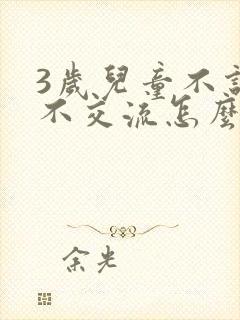 3歲兒童不
不交流怎麼
余光